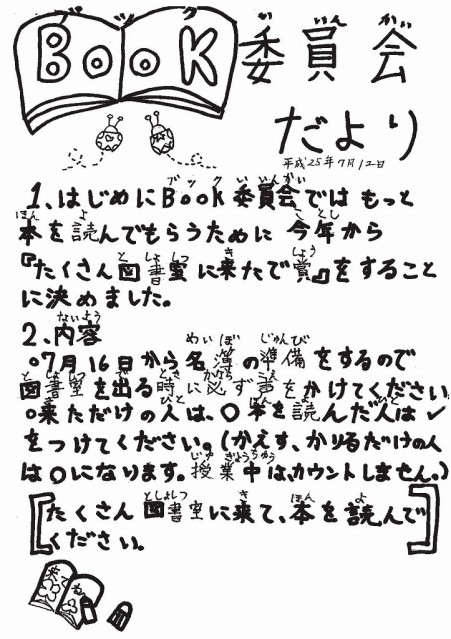 Book 委員会
だより
平成25年7月12日
1、はじめにBook委員会では もっと
本を読んでもらうために 今年から
『たくさん図書室に来たで賞』をすること
に決めました。
2、内容
○7月16日から名簿の準備をするので
図書室を出る時に必ず声をかけてください。
○来ただけの人は、○ 本を読んだ人は✓
をつけてください。(かえす、かりるだけの人
は○になります。授業中は、カウントしません。)
[たくさん図書室に来て、本を読んで
ください。]